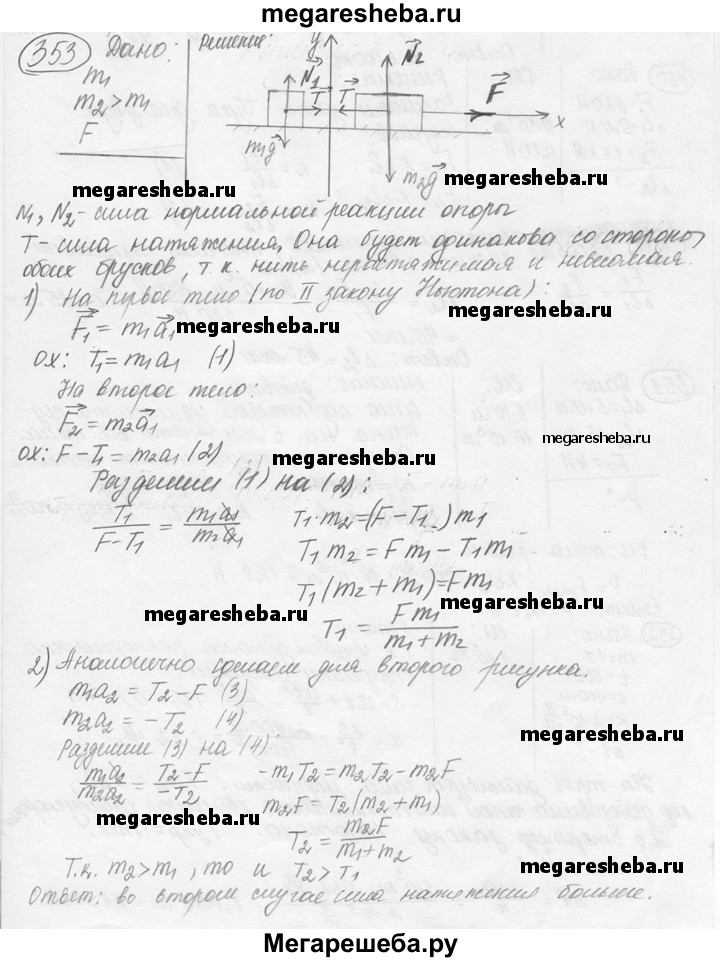 megaresheba.ru
353 Дано: Решение: y N⃗₁ T⃗ T⃗ N⃗₂ F⃗ x
m₁
m₂>m₁
F
m₁g⃗ m₂g⃗
megaresheba.ru megaresheba.ru
N₁, N₂ - сила нормальной реакции опоры
T - сила натяжения, Она будет одинакова со стороны
обоих брусков, т.к. нить нерастяжимая и невесомая.
1) На первое тело (по II закону Ньютона):
F⃗₁ = m₁a⃗₁ megaresheba.ru megaresheba.ru
ох: T₁ = m₁a₁ (1)
На второе тело:
F⃗₂ = m₂a⃗₁
ох: F - T₁ = m₂a₁ (2) megaresheba.ru megaresheba.ru
Разделим (1) на (2):
T₁/(F - T₁) = m₁a₁/m₂a₁ T₁·m₂ = (F - T₁)m₁
T₁m₂ = Fm₁ - T₁m₁
T₁(m₂ + m₁) = Fm₁
megaresheba.ru megaresheba.ru
T₁ = Fm₁/(m₁ + m₂)
2) Аналогично сделаем для второго рисунка.
m₁a₂ = T₂ - F (3) megaresheba.ru
m₂a₂ = - T₂ (4)
Разделим (3) на (4): megaresheba.ru
m₁a₂/m₂a₂ = (T₂ - F)/-T₂ - m₁T₂ = m₂T₂ - m₂F
m₂F = T₂(m₂ + m₁)
megaresheba.ru
T₂ = m₂F/(m₁ + m₂)
Т.к. m₂>m₁, то и T₂>T₁ megaresheba.ru
Ответ: во втором случае сила натяжения больше.
megaresheba.ru
Мегарешеба.ру